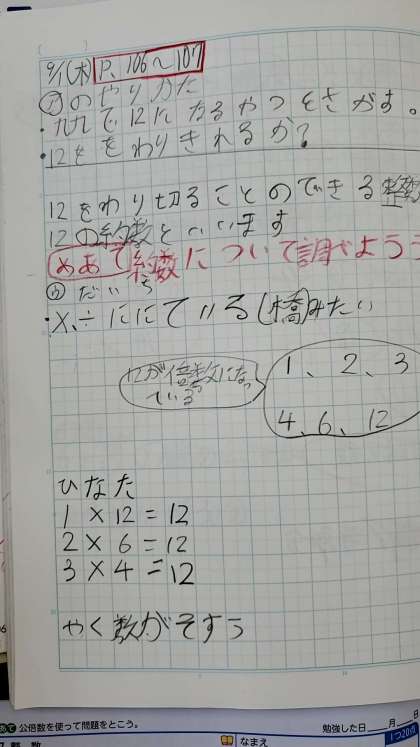 9/1(木) P.106〜107
㋐のやりかた
・九九で12になるやつをさがす。
・12をわりきれるか?
12をわり切ることのできる整数
12の約数といいます
めあて 約数について調べよう
㋒だいち
・×、÷ににている(橋みたい
12が倍数になっている
1、2、3
4、6、12
ひなた
1×12=12
2×6=12
3×4=12
やく数がそすう
公倍数を使って問題をとこう。
勉強した日 月 日
なまえ
1つ20点